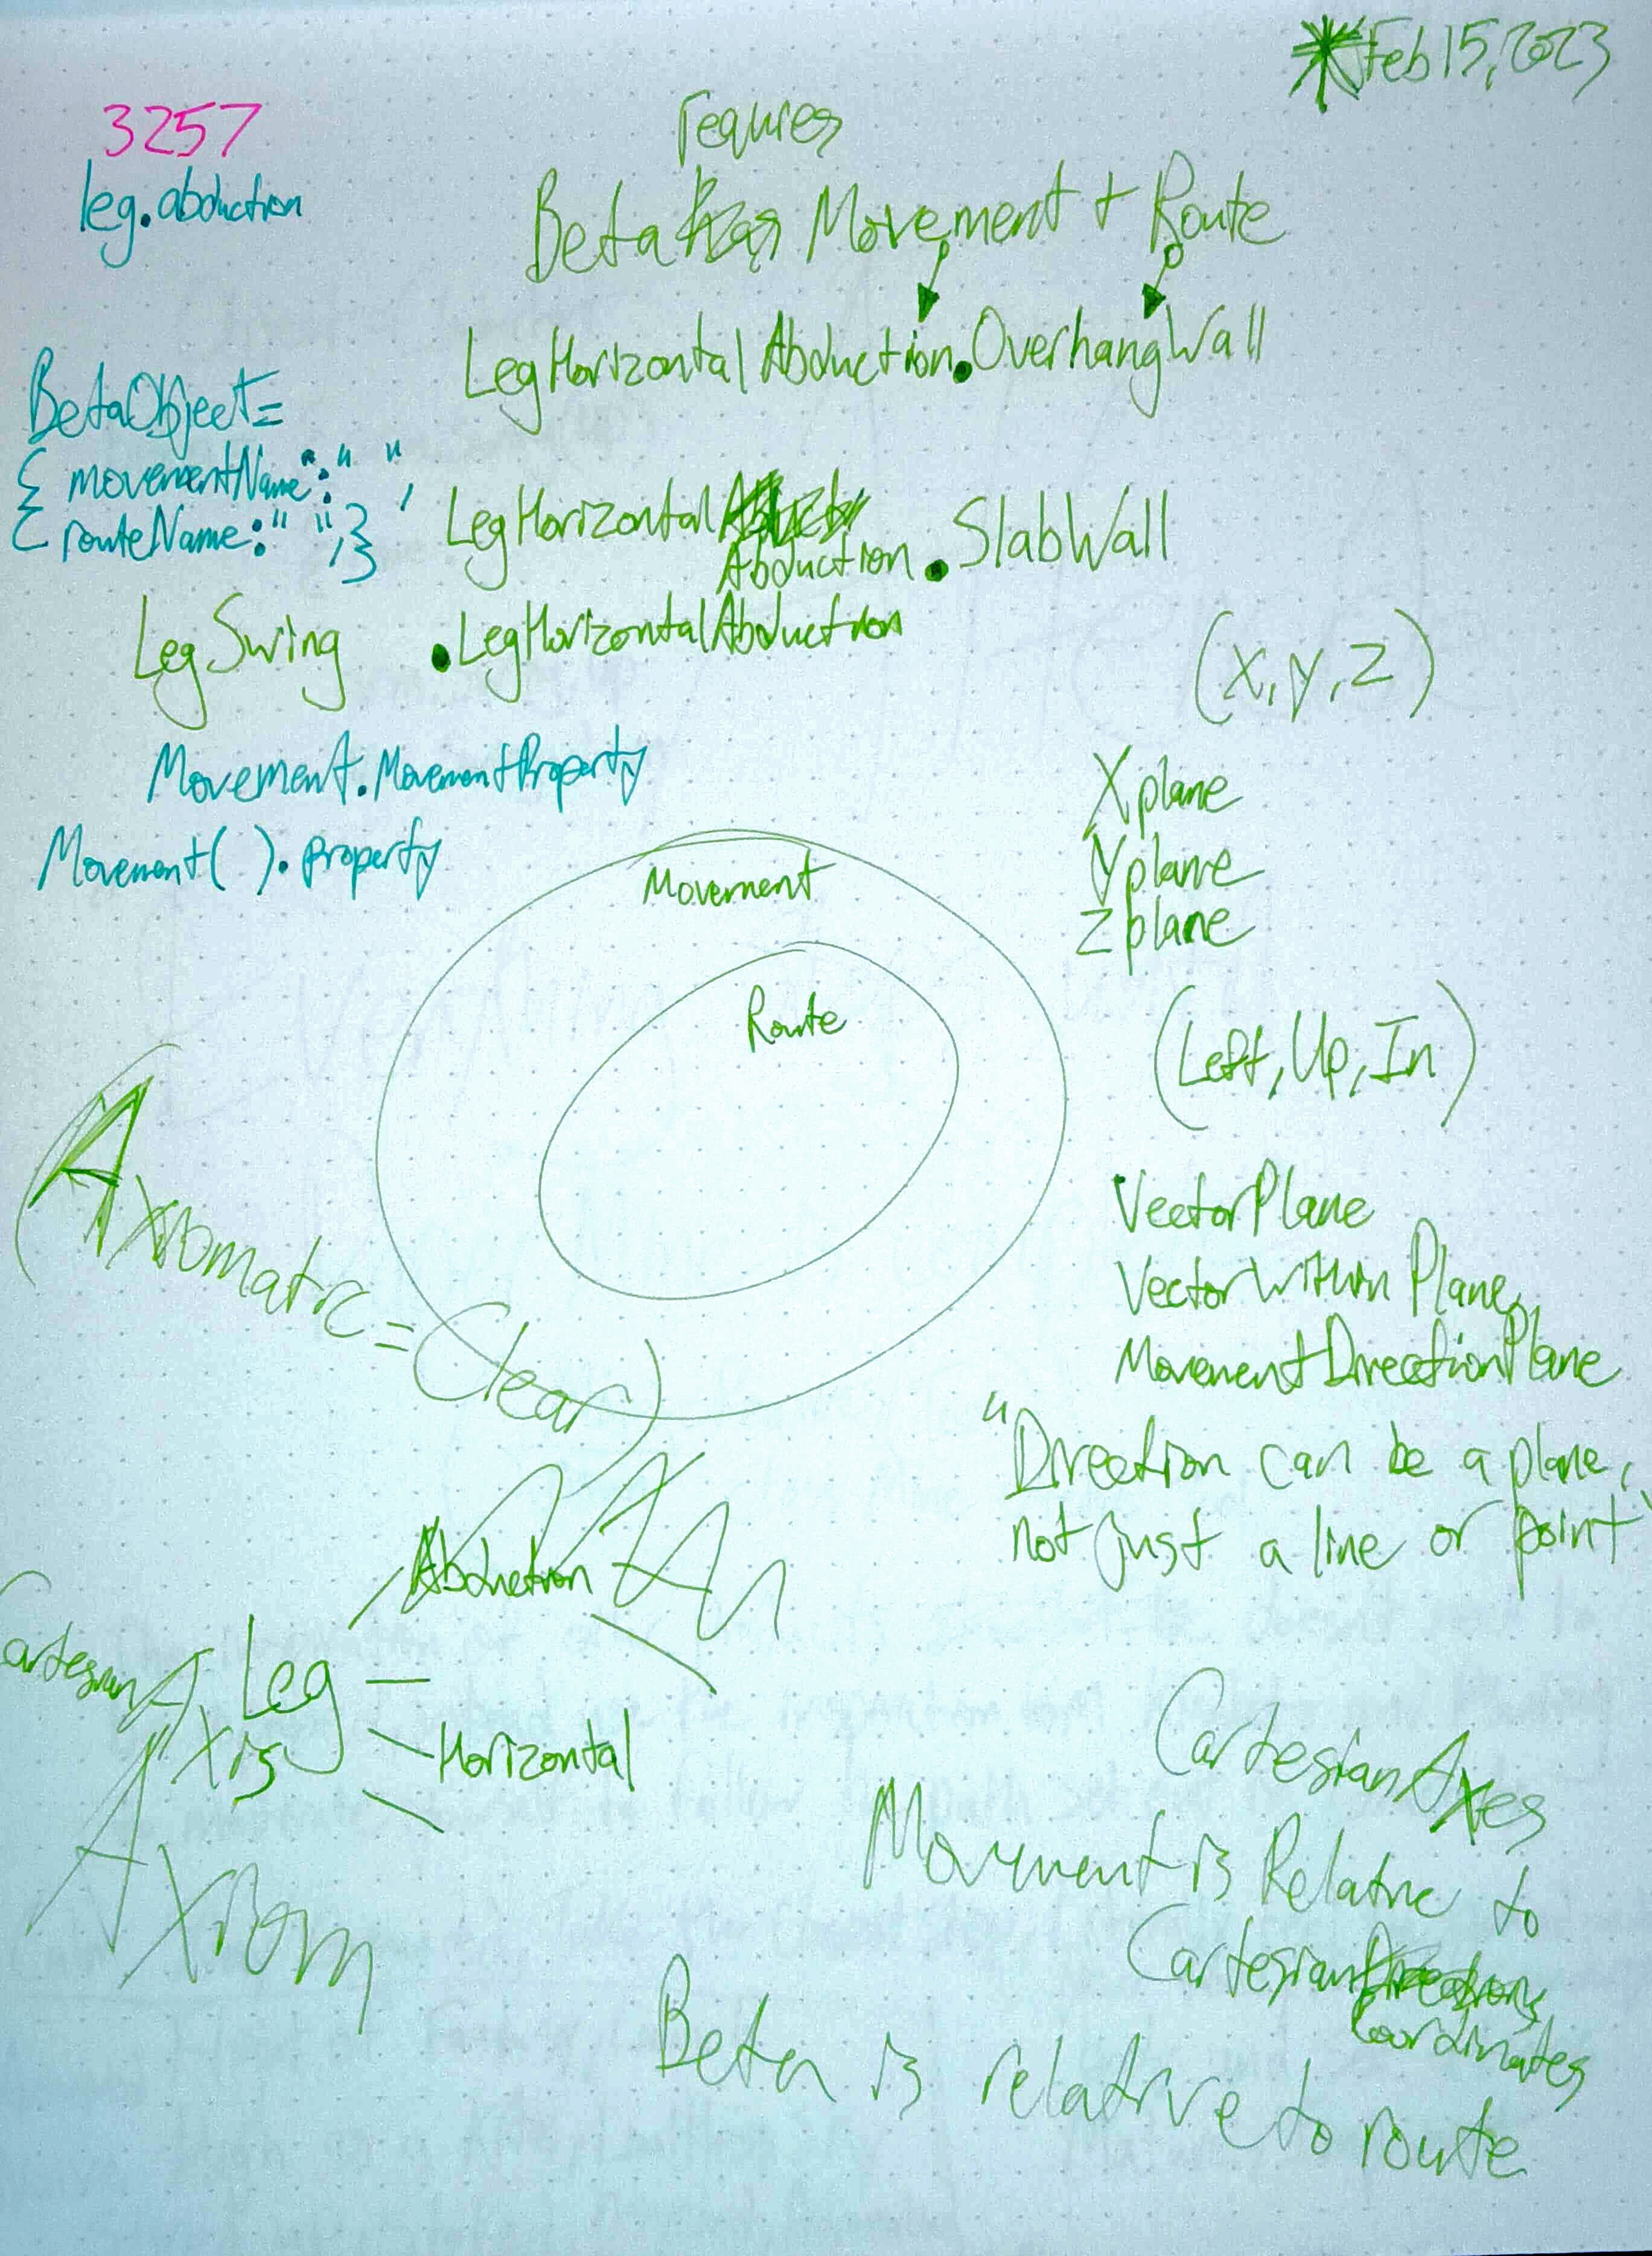 Feb 15, 2023
3257
leg.abduction
requires
Beta has Movement + Route
LegHorizontalAbduction.OverhangWall
BetaObject=
{ movementName: " ",
{ routeName: " ",}}
LegHorizontal
Abduction.SlabWall
LegSwing .LegHorizontalAbduction
(x, y, z)
Movement.MovementProperty
Movement( ).property
X plane
Y plane
Z plane
Movement
Route
(Left, Up, In)
(Axiomatic = Clear)
VectorPlane
VectorWithinPlane
MovementDirectionPlane
"Direction can be a plane,
not just a line or point
Abduction
Cartesian
Axis
Leg
Horizontal
Axiom
CartesianAxes
Movement is Relative to
Cartesian Directions
Coordinates
Beta is relative to route